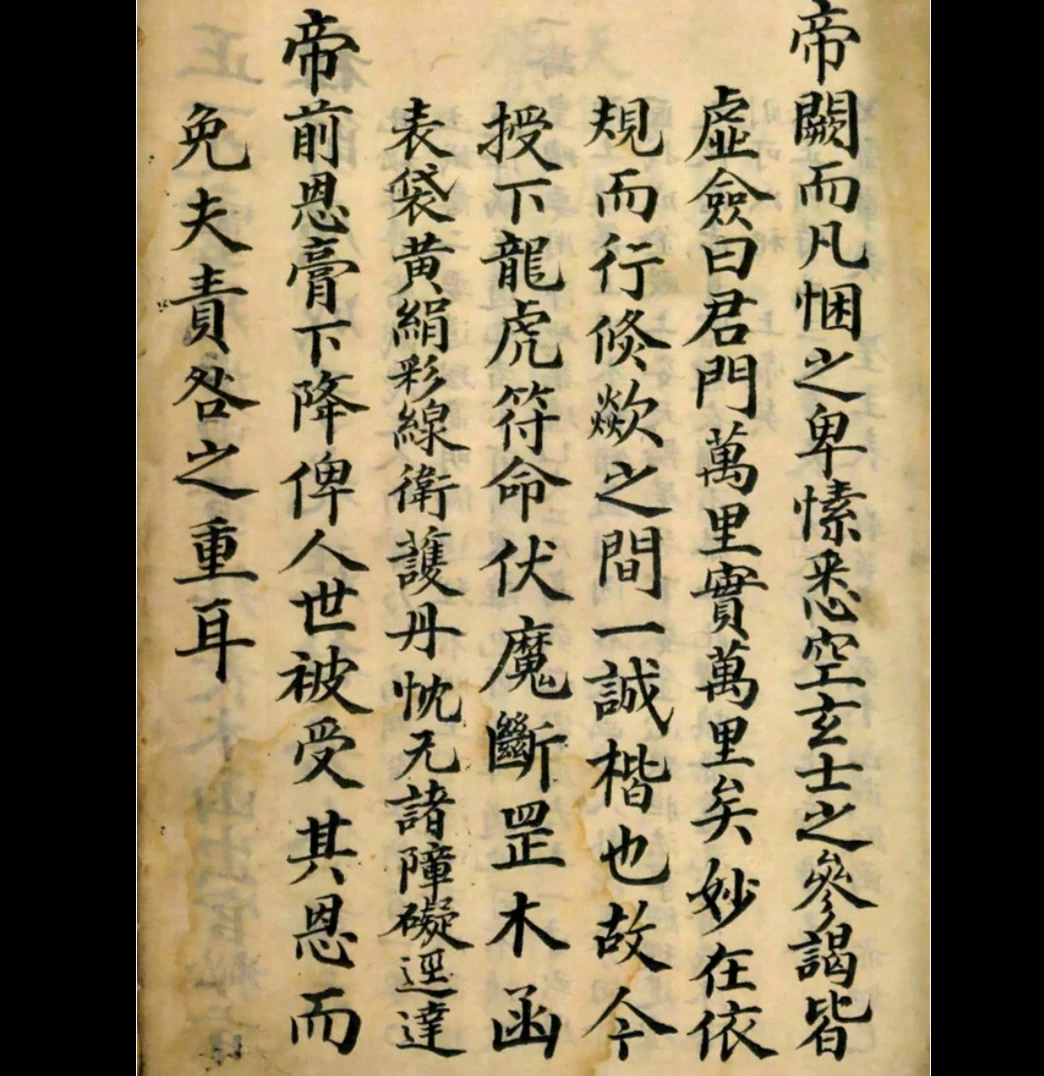 帝闕而凡悃之卑愫悉空玄士之參謁皆
虛僉曰君門萬里實萬里矣妙在依
規而行倏歘之間一誠楷也故今
授下龍虎符命伏魔斷罡木函
表袋黄絹彩線衛護丹忱无諸障礙逕達
帝前恩膏下降俾人世被受其恩而
免夫責咎之重耳